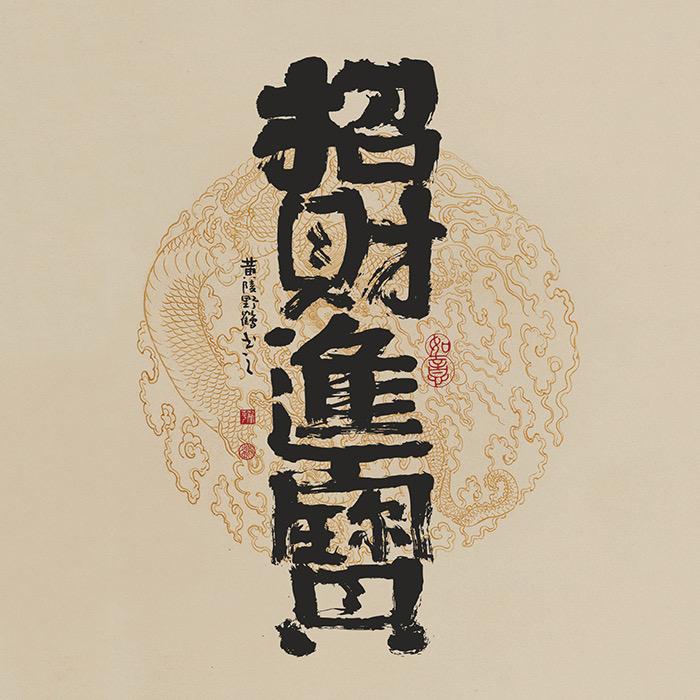 招財進寶
黄陵野鶴书之
如意